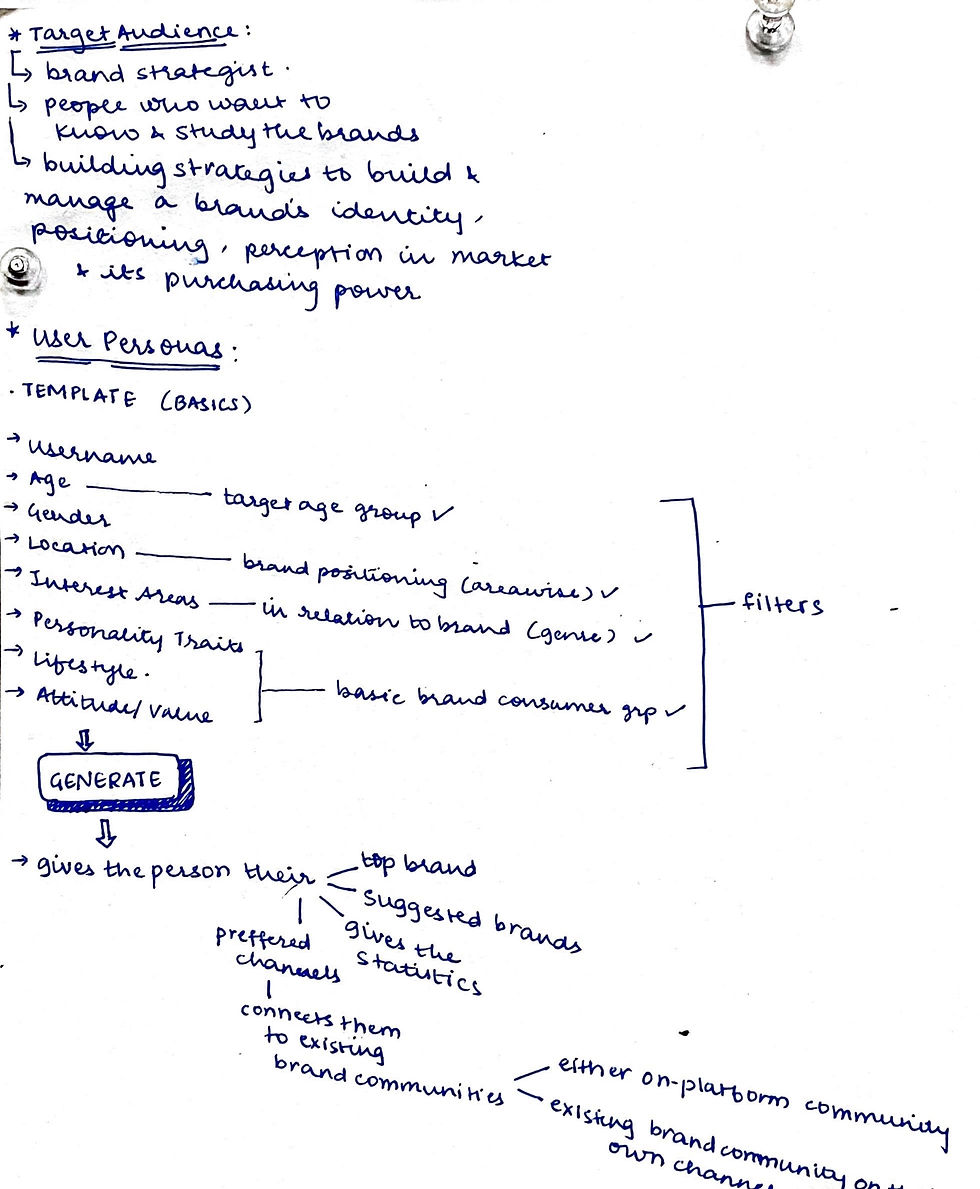 * Target Audience:
↳ brand strategist.
↳ people who want to
know & study the brands
↳ building strategies to build &
manage a brand's identity,
positioning, perception in market
& its purchasing power
* User Personas:
. TEMPLATE (BASICS)
→ Username
→ Age — target age group ✓
→ Gender
→ Location — brand positioning (areawise) ✓
→ Interest Areas — in relation to brand (genre) ✓
→ Personality Traits
→ Lifestyle.
→ Attitude/Value
basic brand consumer grp ✓
filters
GENERATE
→ gives the person their
top brand
suggested brands
gives the
statistics
preffered
channels
connects them
to existing
brand communities
either on-platform community
existing brand community on
own